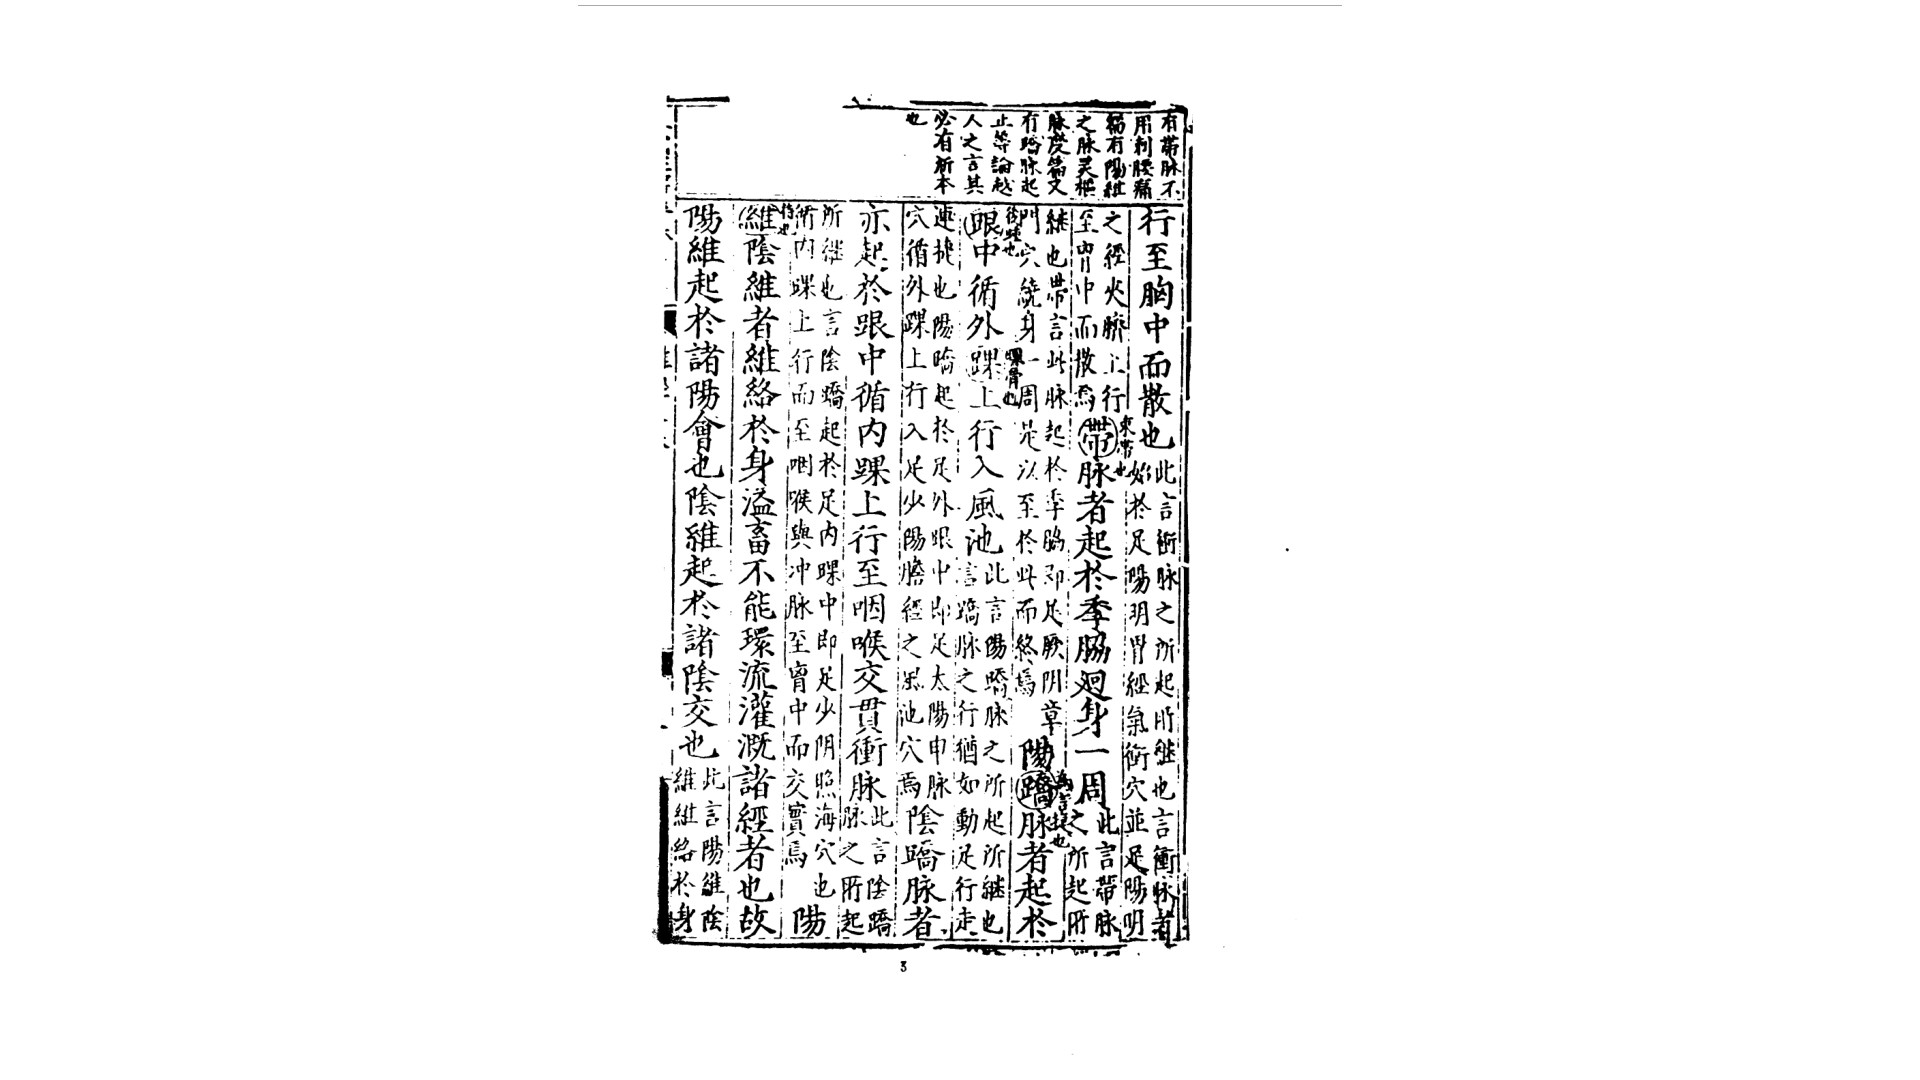 有帶脉不
用刺腰痛
篇有陽維
之脉灵樞
脉度篇又
有蹻脉起
止等論越
人之言其
必有所本
也
行至胸中而散也此言衝脉之所起所継也言衝脉者
始於足陽明胃經氣衝穴並足陽明
之經夾臍上行
至胷中而散焉帶脉者起於季脇廻身一周此言帶脉
束帶也
之所起所
継也帶言此脉起於季脇即足厥阴章
門穴繞身一周是以至於此而終焉陽蹻脉者起於
為言捷也
跟中循外踝上行入風池此言陽蹻脉之所起所継也
後踵也
踝骨也
言蹻脉之行猶如動足行走
連捷也陽蹻起於足外跟中即足太陽申脉
穴循外踝上行入足少陽膽經之風池穴焉陰蹻脉者
亦起於跟中循内踝上行至咽喉交貫衝脉此言陰蹻
脉之所起
所継也言陰蹻起於足内踝中即足少阴照海穴也
循内踝上行而至咽喉與冲脉至胷中而交實焉陽
維陰維者維絡於身溢畜不能環流灌溉諸經者也故
持也
陽維起於諸陽會也陰維起於諸陰交也此言陽維陰
維維絡於身
3